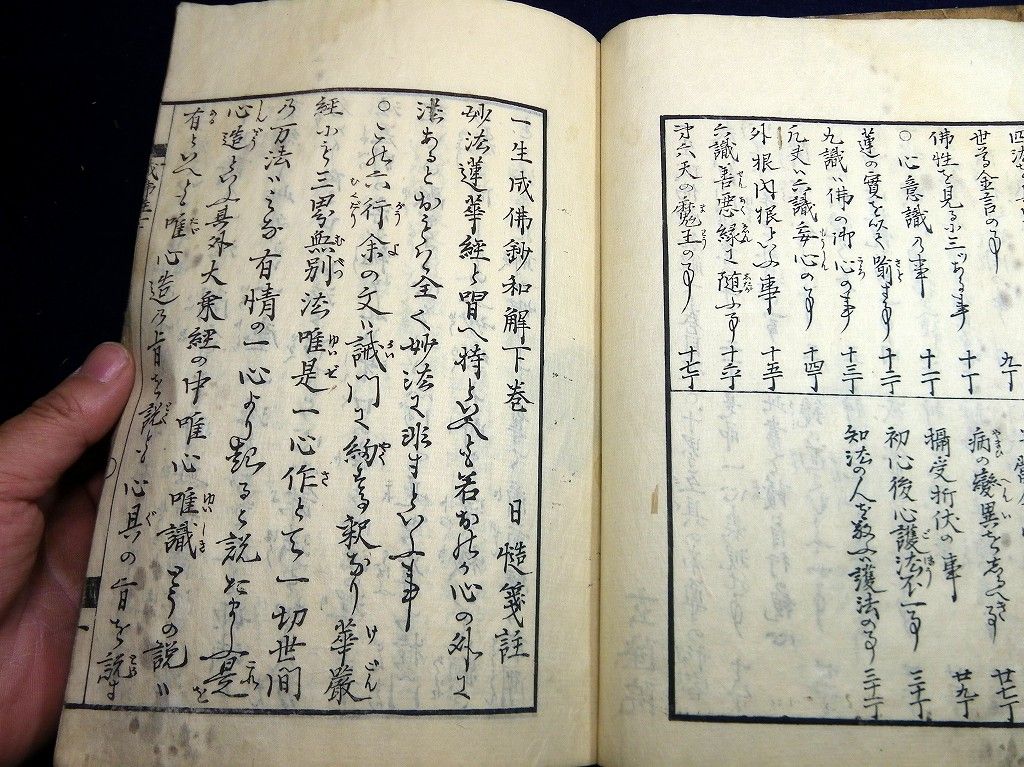 世尊金言の事
佛性を見るに三つ有事 十丁
○心意識の事 十一丁
蓮の實を以て喩ます事 十二丁
九識ハ佛の御心の事 十三丁
凡夫ハ六識妄心の事 十四丁
外根内根といふ事 十五丁
六識善悪縁に随ふ事 十六丁
第六天の魔王の事 十七丁
病の變異をしるへき 廿七丁
攝受折伏の事 廿九丁
初心後心護法不一事 三十丁
知法の人を敎ふ護法の事 三十一丁
一生成佛鈔和解下巻 日慥箋註
妙法蓮華經と唱へ持といへとも若おのれか心の外に
法あるとおもはゝ全く妙法に非すといふ事
○この六行余の文ハ誡門に約する釈なり華嚴
經にも三界無別法唯是一心作とて一切世間
の万法ハみな有情の一心より起ると説たまふ是
心造といふ其外大乗經の中唯心唯識との説ハ
有といへと唯心造の旨を説と心具の旨を説す